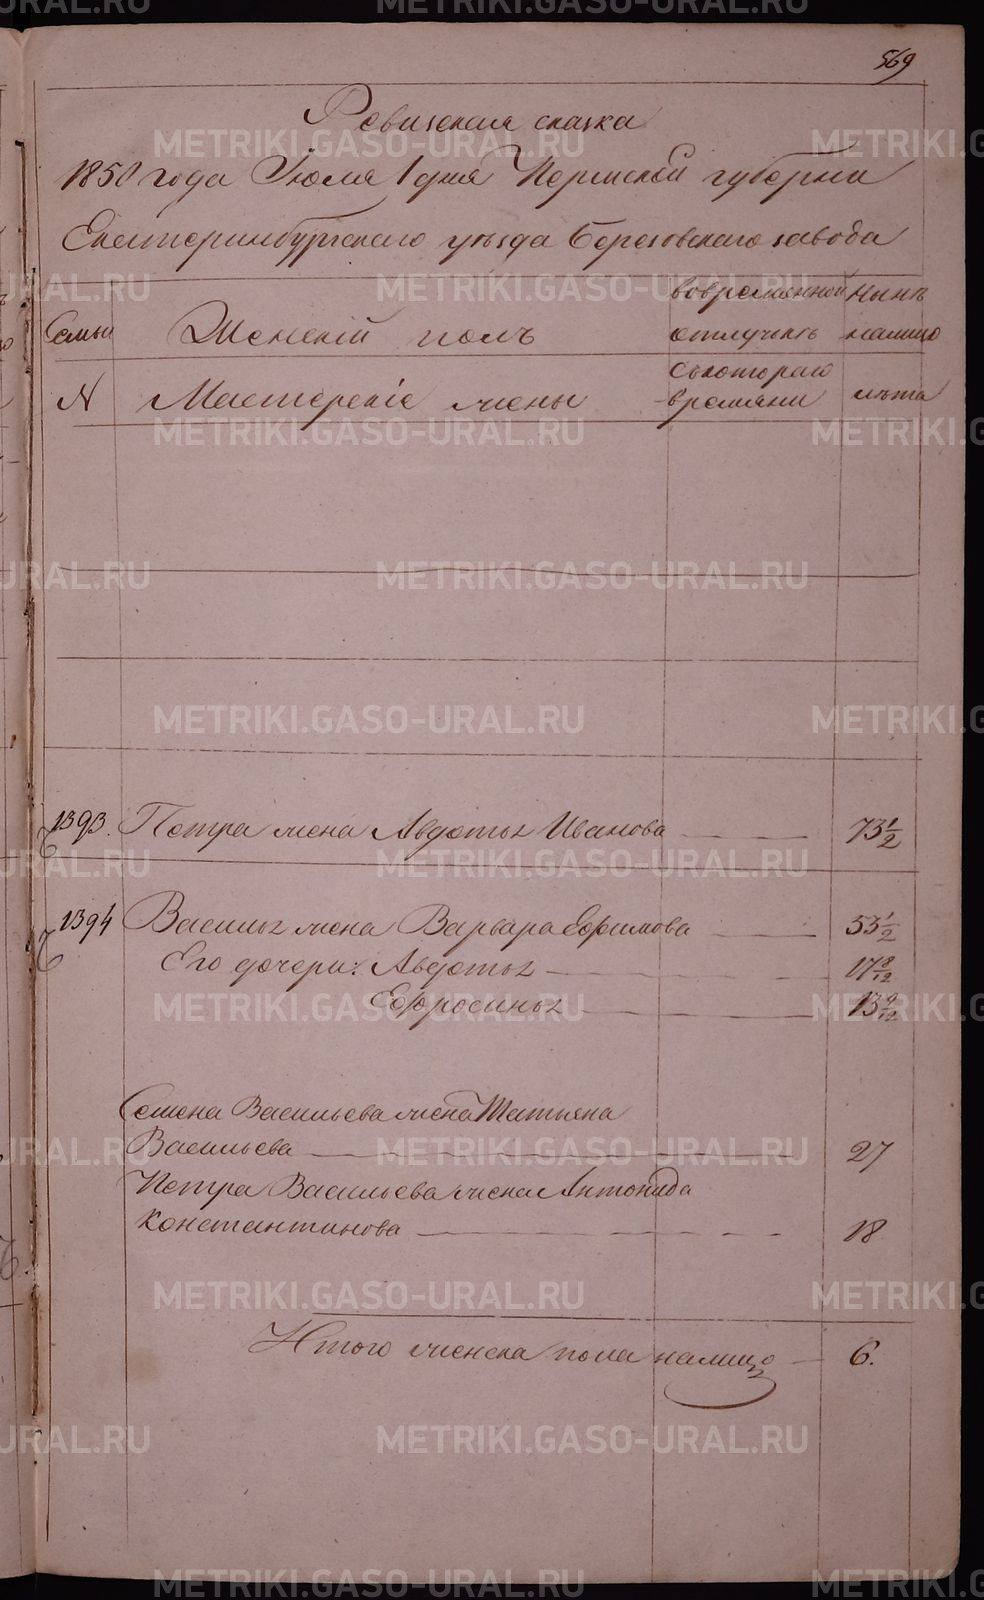 569
Ревизская сказка
1850 года Июля 1 дня Пермской губернии
Екатеринбургского уезда Березовского завода
Семьи
Женскій полъ
вовременной
отлучкѣ
Нынѣ
налицо
N
Мастерскіе жены
скотораго
времяни
лѣта
1393. Петра жена Авдотья Иванова 73 1/2
1394 Василья жена Варвара Ефимова 53 1/2
Его дочери: Авдотья 17 8/12
Ефросинья 13 9/12
Семена Васильева жена Татьяна
Васильева 27
Петра Васильева жена Антонида
Константинова 18
Итого женска пола налицо 6.
METRIKI.GASO-URAL.RU